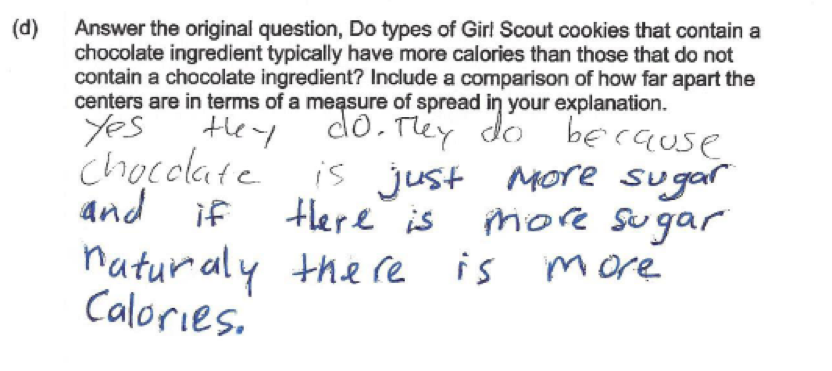 (d) Answer the original question, Do types of Girl Scout cookies that contain a
chocolate ingredient typically have more calories than those that do not
contain a chocolate ingredient? Include a comparison of how far apart the
centers are in terms of a measure of spread in your explanation.
Yes they do. They do because
chocolate is just more sugar
and if there is more sugar
naturaly there is more
Calories.